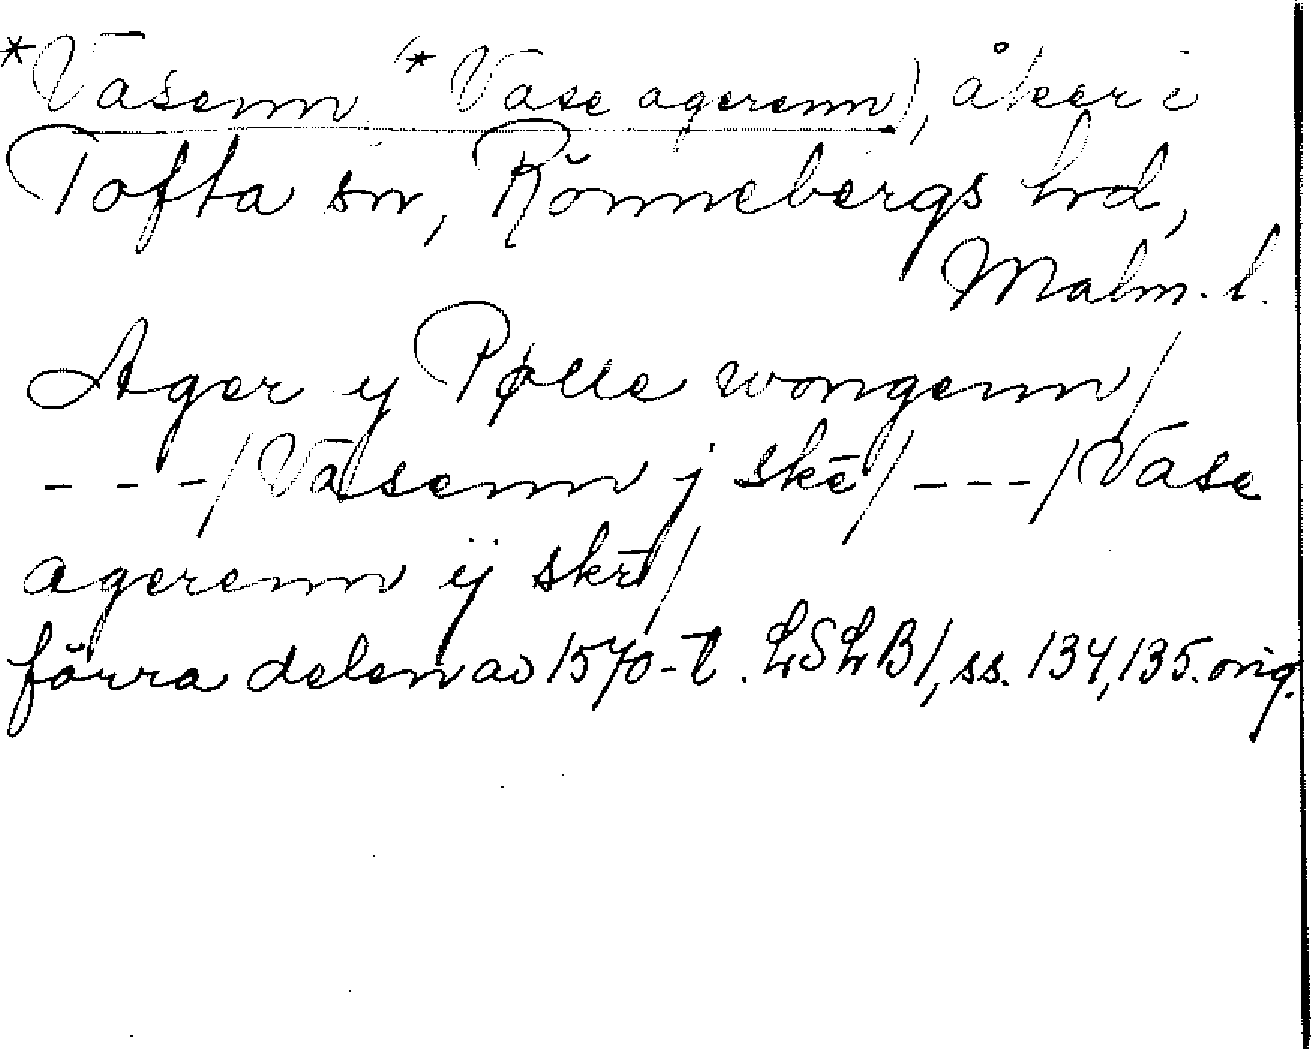 *Vasenn (*Vase agerenn), åker i
Tofta sn, Rönnebergs hd,
Malm. l.
Ager y Pølle wongenn/
---/Vasenn j skē/---/Vase
agerenn ij skē/
förra delen av 1570-t. LSLB1, ss. 134, 135. orig.